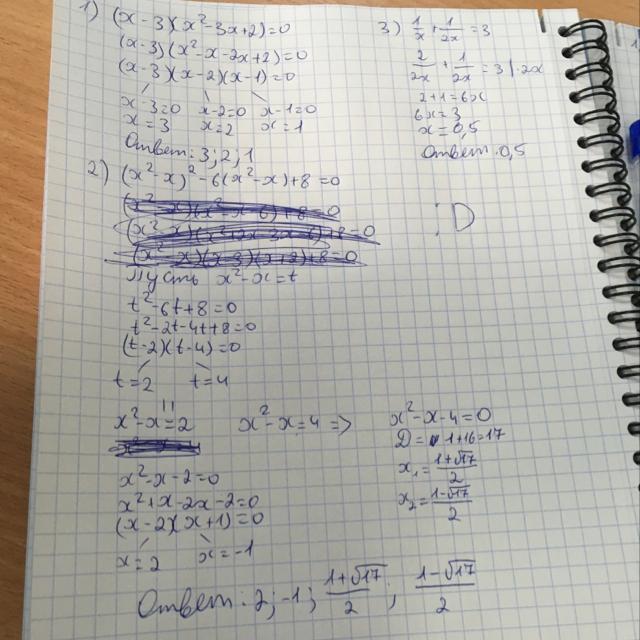 1) (x-3)(x²-3x+2)=0
(x-3)(x²-x-2x+2)=0
(x-3)(x-2)(x-1)=0
x-3=0 x-2=0 x-1=0
x=3 x=2 x=1
Ответ: 3; 2; 1
2) (x²-x)²-6(x²-x)+8=0
Пусть x²-x=t
t²-6t+8=0
t²-2t-4t+8=0
(t-2)(t-4)=0
t=2 t=4
x²-x=2 x²-x=4 => x²-x-4=0
D=1+16=17
x₁=(1+√17)/2
x₂=(1-√17)/2
x²-x-2=0
x²+x-2x-2=0
(x-2)(x+1)=0
x=2 x=-1
Ответ: 2; -1; (1+√17)/2; (1-√17)/2
3) 1/x+1/2x=3
2/2x+1/2x=3 |·2x
2+1=6x
6x=3
x=0,5
Ответ: 0,5
:D